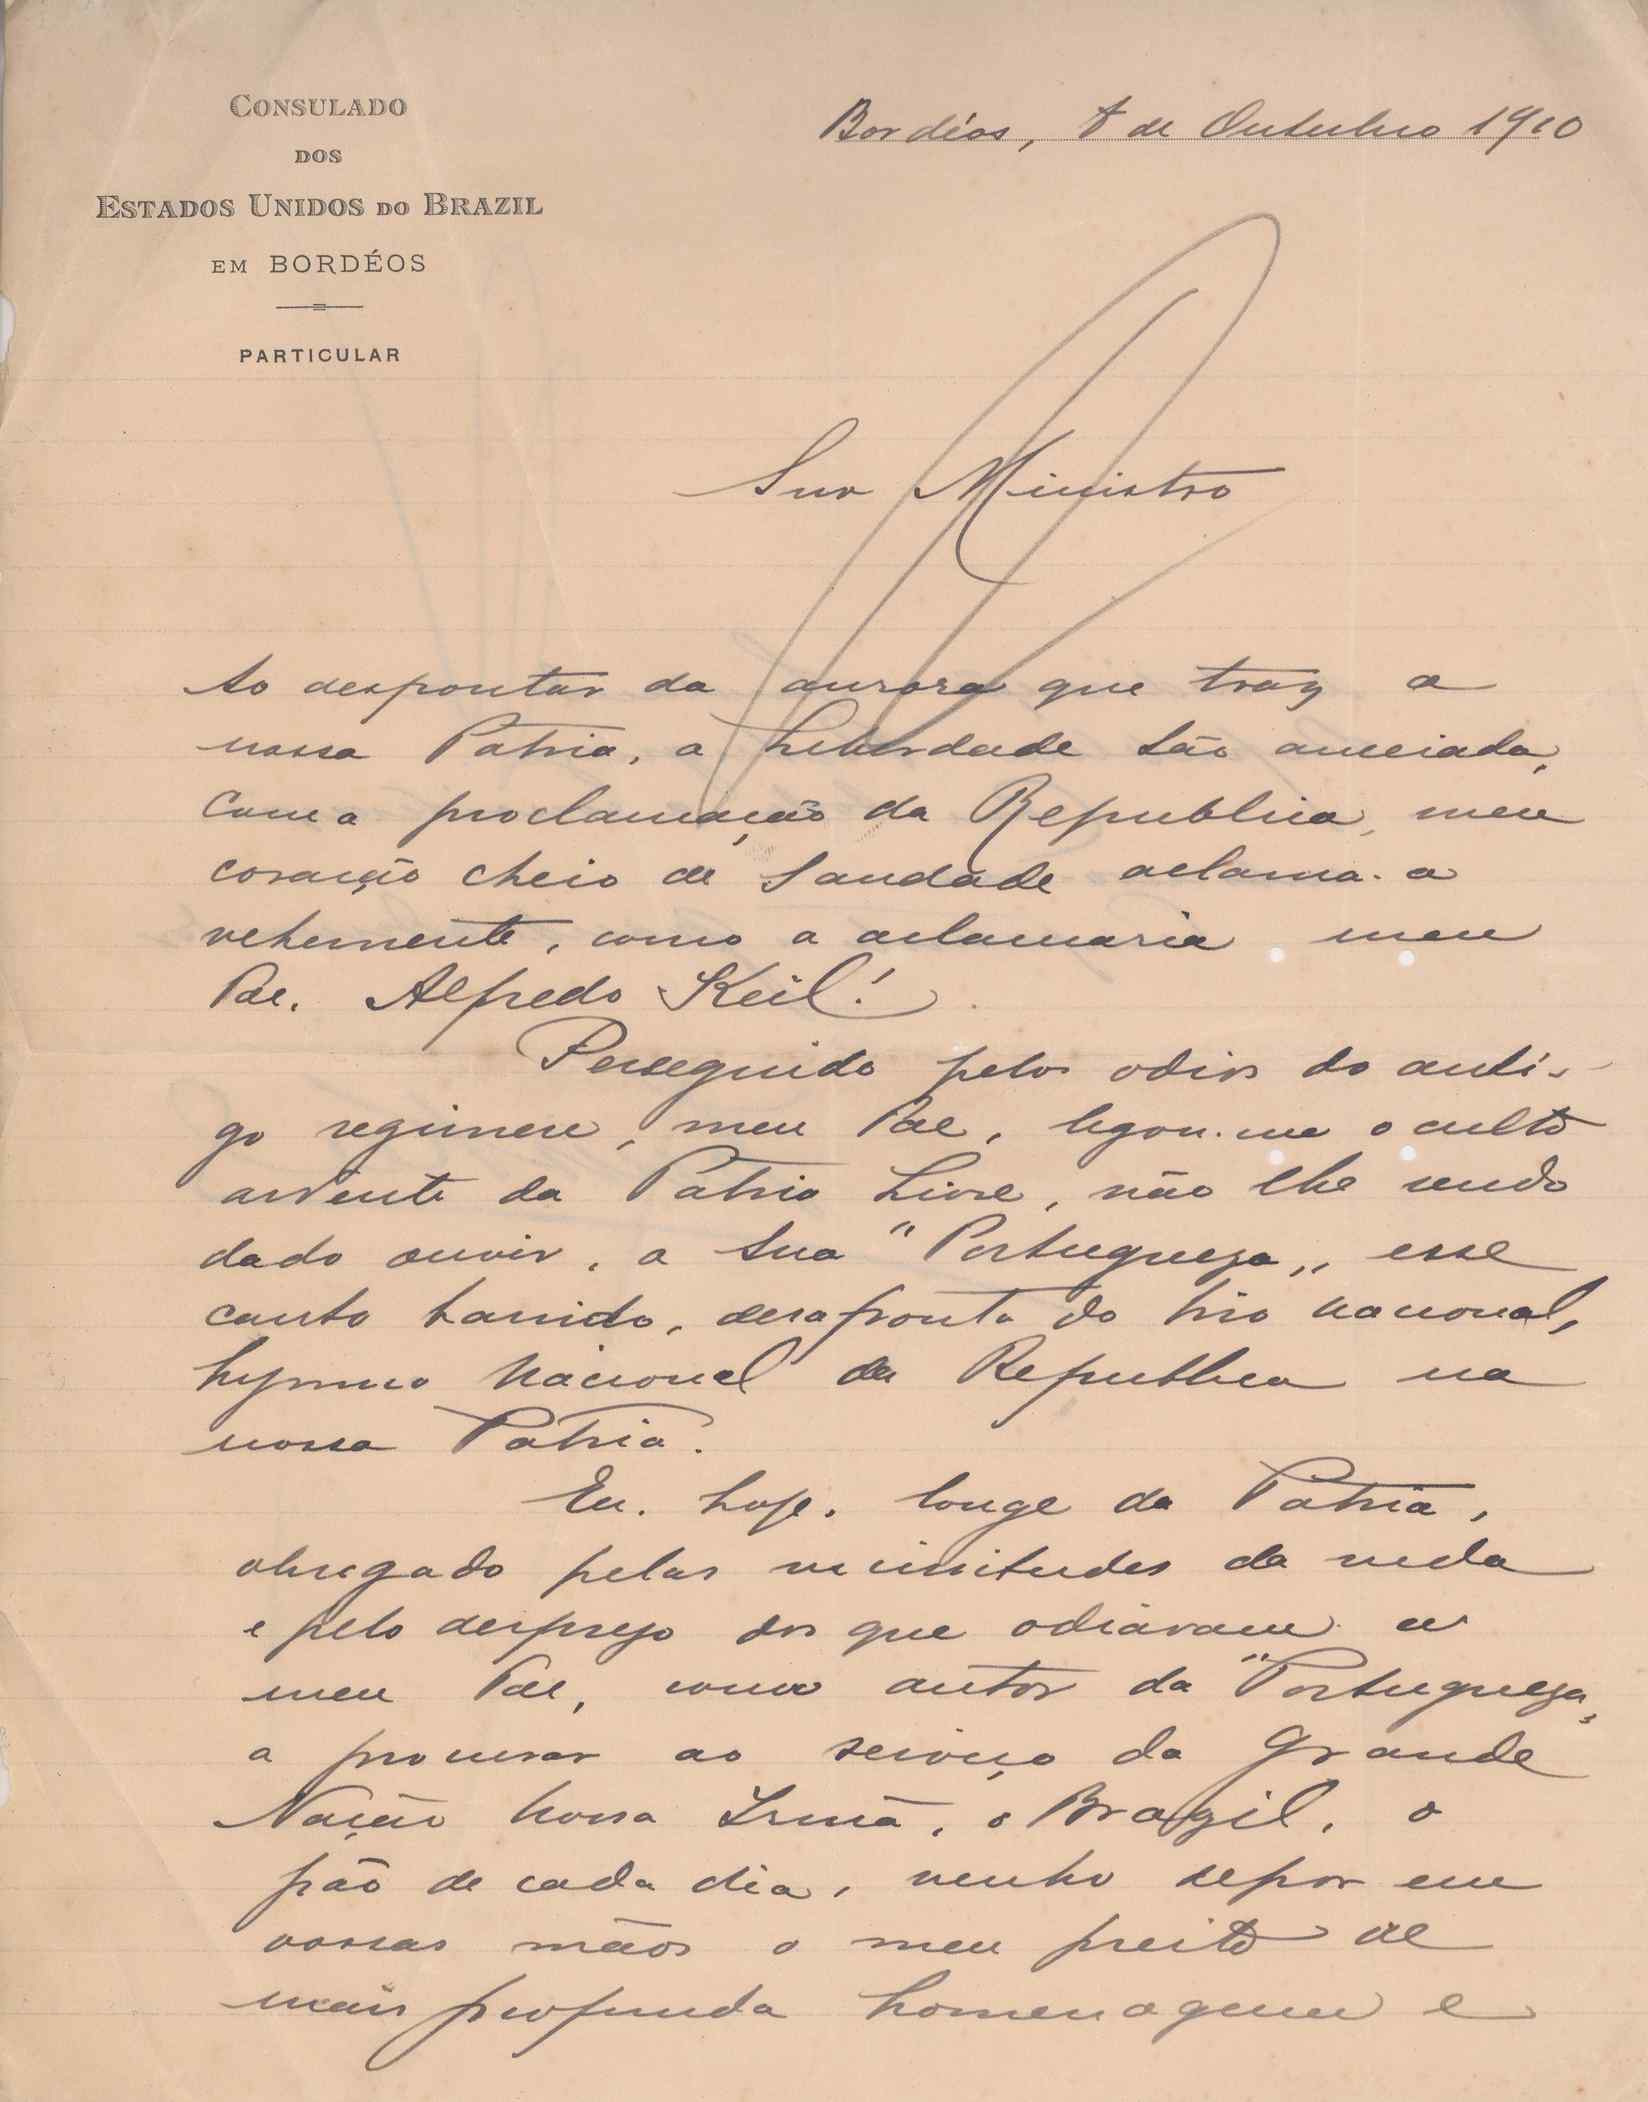 CONSULADO
DOS
ESTADOS UNIDOS DO BRAZIL
EM BORDÉOS
PARTICULAR
Bordéos, 8 de Outubro 1910
Snr Ministro
Ao despontar da aurora que traz a
nossa Patria, a Liberdade tão anceiada,
com a proclamação da Republica, meu
coração cheio de saudade aclama-a
vehemente, como a aclamaria meu
Pae, Alfredo Keil!
Perseguido pelos odios do anti-
go regimen, meu Pae, legou-me o culto
ardente da Patria Livre, não lhe sendo
dado ouvir, a sua "Portugueza,, esse
canto banido, desafronta do brio nacional,
hymno Nacional da Republica na
nossa Patria.
Eu, hoje, longe da Patria,
obrigado pelas vicissitudes da vida
e pelo desprezo dos que odiavam a
meu Pae, como autor da "Portugueza,,
a procurar ao serviço da Grande
Nação Nossa Irmã, o Brazil, o
pão de cada dia, venho depor em
vossas mãos o meu preito de
mais profunda homenagem e